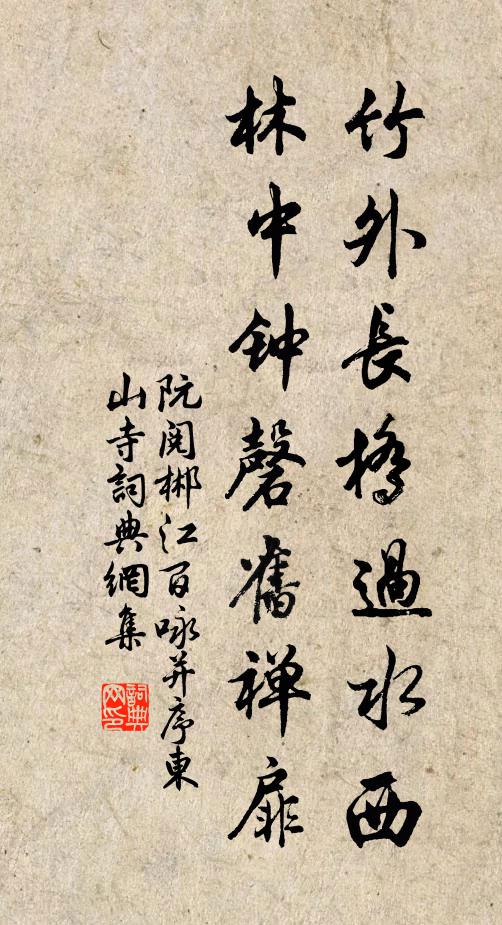 竹外長橋過水西
林中钟磬舊禅扉
阮阅郴江百咏并序東
山寺詞典網集
詞典网印